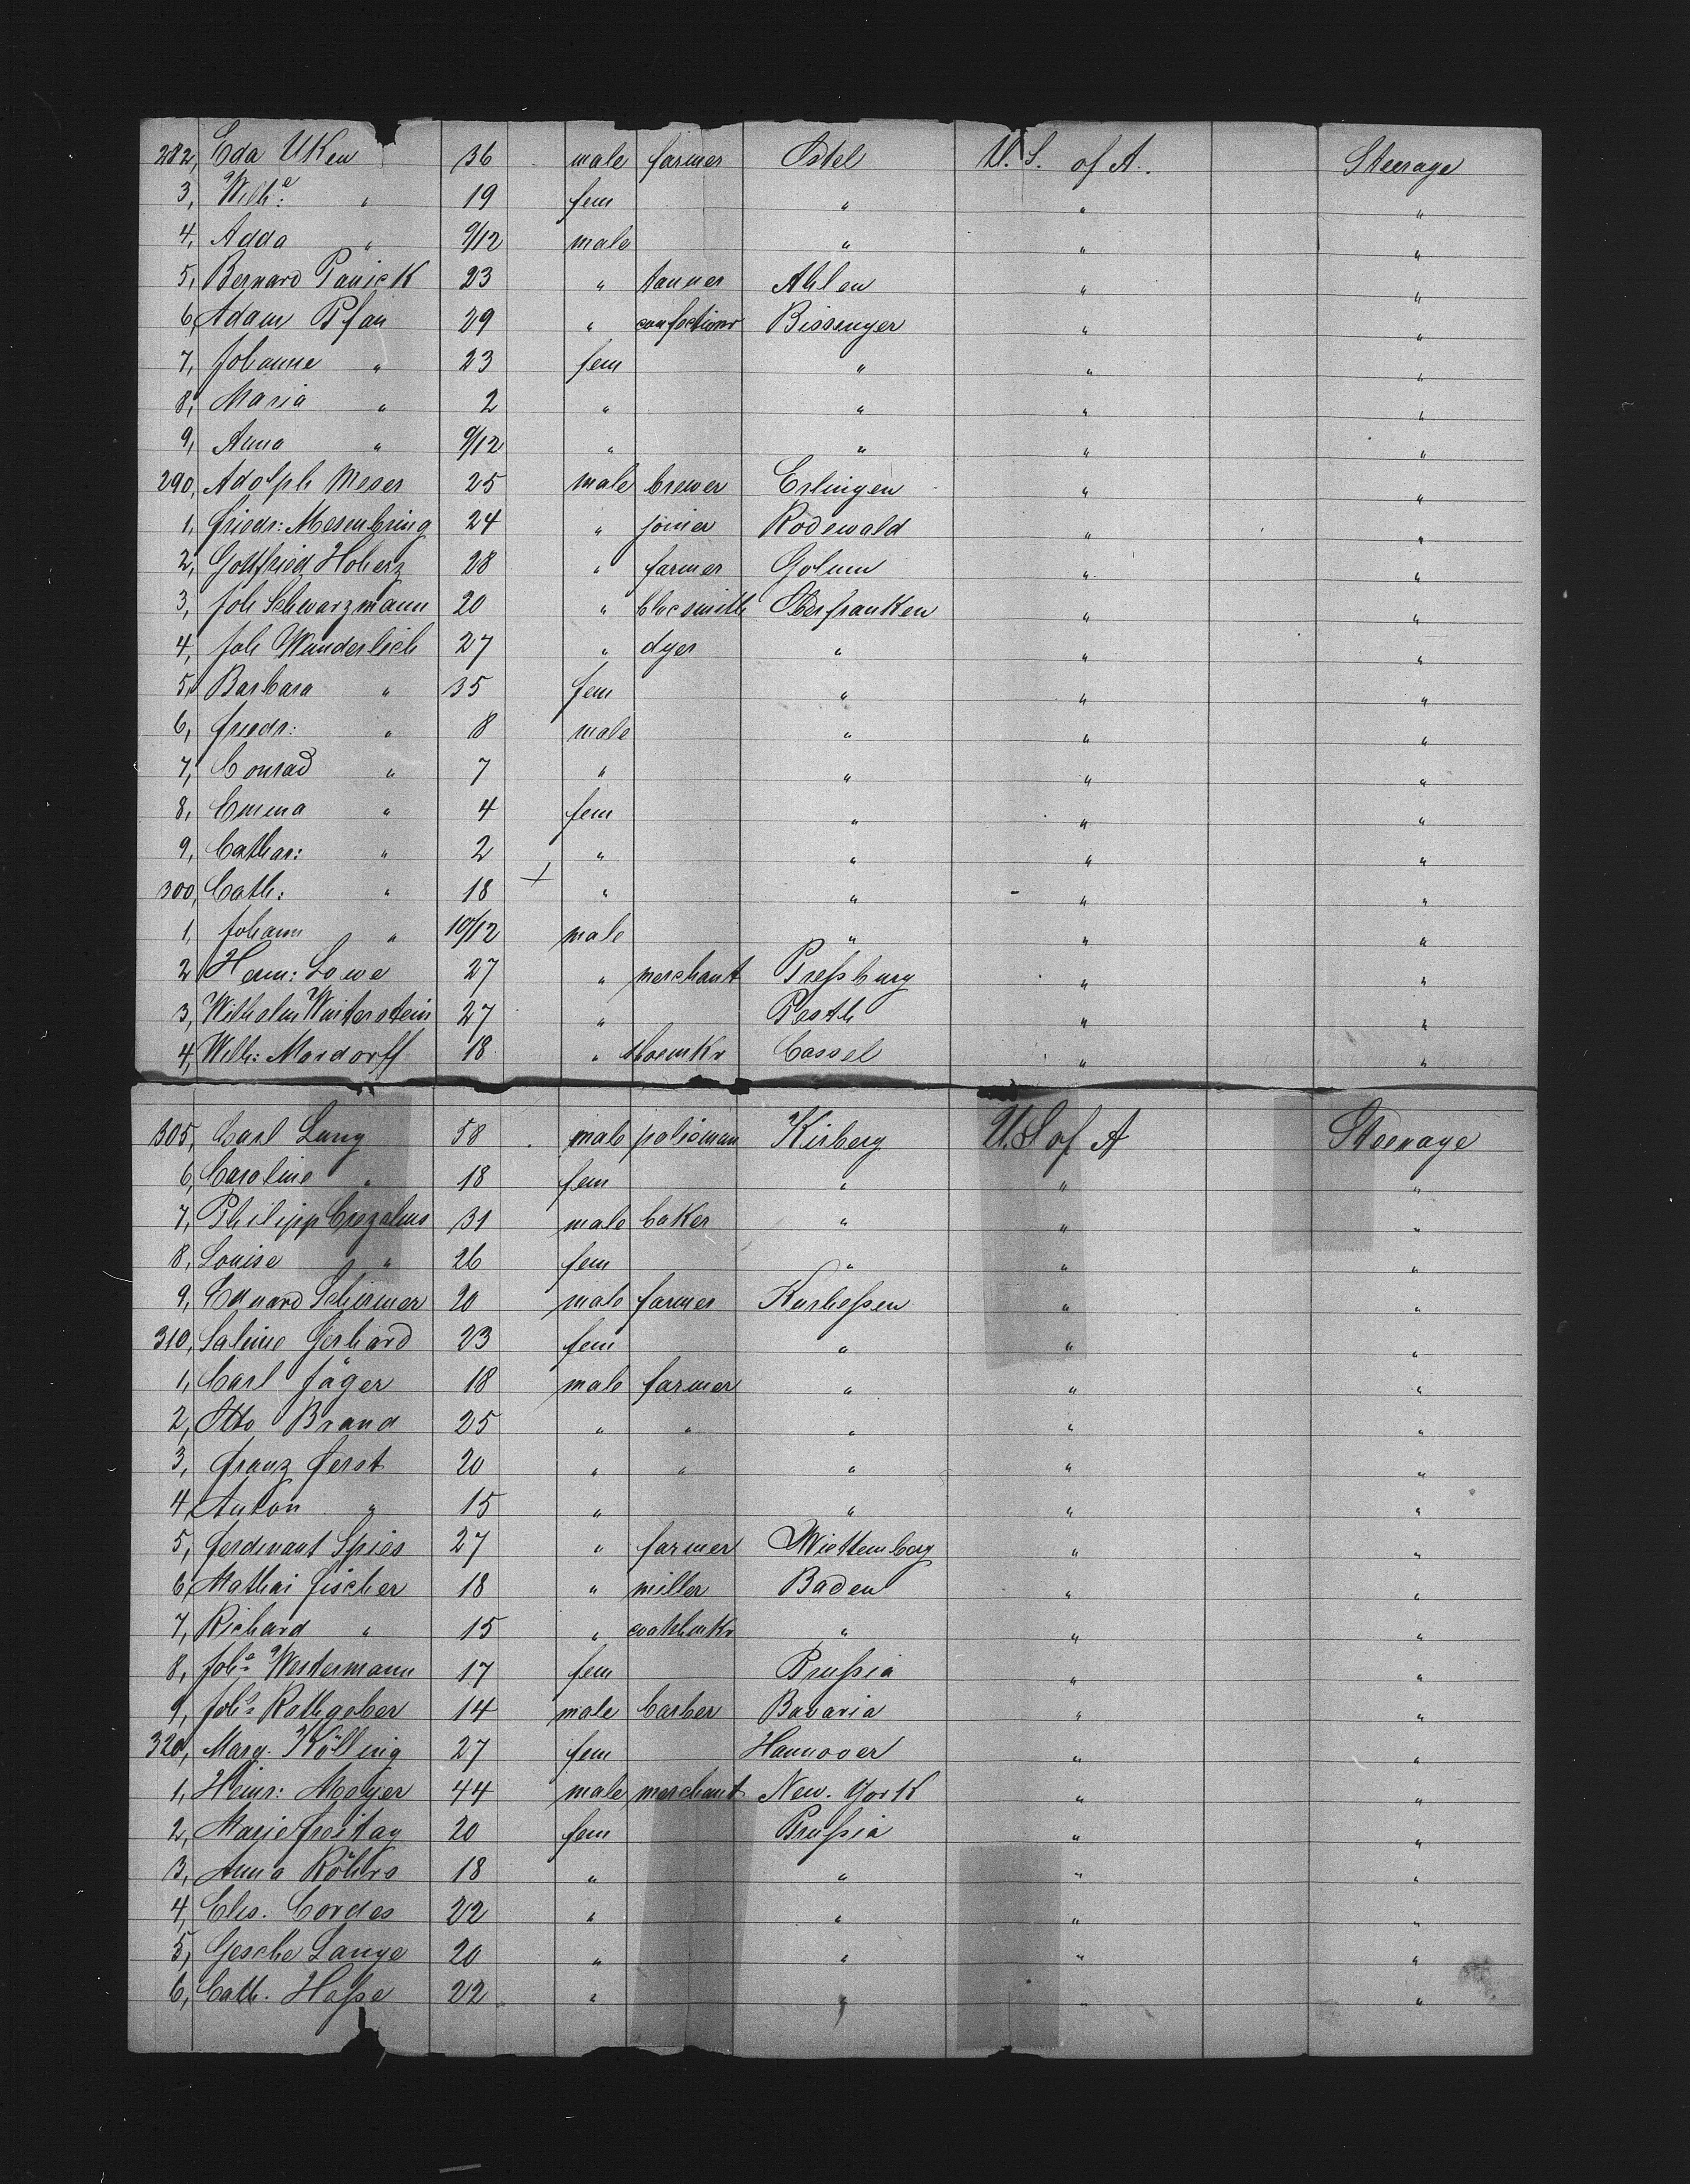 282, Eda Uken 36 male farmer Ostel U. S. of A. Steerage
3, Wilhe " 19 fem " " "
4, Adda " 9/12 male " " "
5, Bernard Panick 23 " tanner Ahlen " "
6, Adam Pfau 29 " confectionr Bissinger " "
7, Johanne " 23 fem " " "
8, Maria " 2 " " " "
9, Anna " 9/12 " " " "
290, Adolph Meser 25 male brewer Erlingen " "
1, Friedr: Mesenbring 24 " joiner Rodewald " "
2, Gottfried Hoherz 28 " farmer " "
3, Joh Schwarzmann 20 " blacsmith Oberfranken " "
4, Joh Wunderlich 27 " dyer " " "
5, Barbara " 35 fem " " "
6, Friedr: " 8 male " " "
7, Conrad " 7 " " " "
8, Emma " 4 fem " " "
9, Cathar: " 2 " " " "
300, Cath: " 18 + " " " "
1, Johann " 10/12 male " " "
2 Herm: Lowe 27 " merchant Preßburg " "
3, Wilhelm Winterstein 27 " Pesth " "
4, Wilh: Mardorff 18 " shoemkr Cassel " "
305, Carl Lung 58 male polisman Kirberg U.S of A Steerage
6, Caroline " 18 fem " " "
7, Philipp 31 male baker " " "
8, Louise " 26 fem " " "
9, Eduard Schirmer 20 male farmer Kurheßen " "
310, Saline Gerhard 23 fem " " "
1, Carl Jäger 18 male farmer " " "
2, Otto Brand 25 " " " " "
3, Franz Ferst 20 " " " " "
4, Anton " 15 " " " "
5, Ferdinant Spies 27 " farmer Wiettemberg " "
6, Mathai Fischer 18 " miller Baden " "
7, Richard " 15 " watchmkr " " "
8, Johe Westermann 17 fem Prußia " "
9, Johs Rathgeber 14 male barber Bavaria " "
320, Marg. Kölling 27 fem Hannover " "
1, Heinr: Meyer 44 male merchant New. York " "
2, Marie Freitag 20 fem Prußia " "
3, Anna Röhrs 18 " " " "
4, Elis. Cordes 22 " " " "
5, Gesche Lange 20 " " " "
6, Cath. Haße 22 " " " "